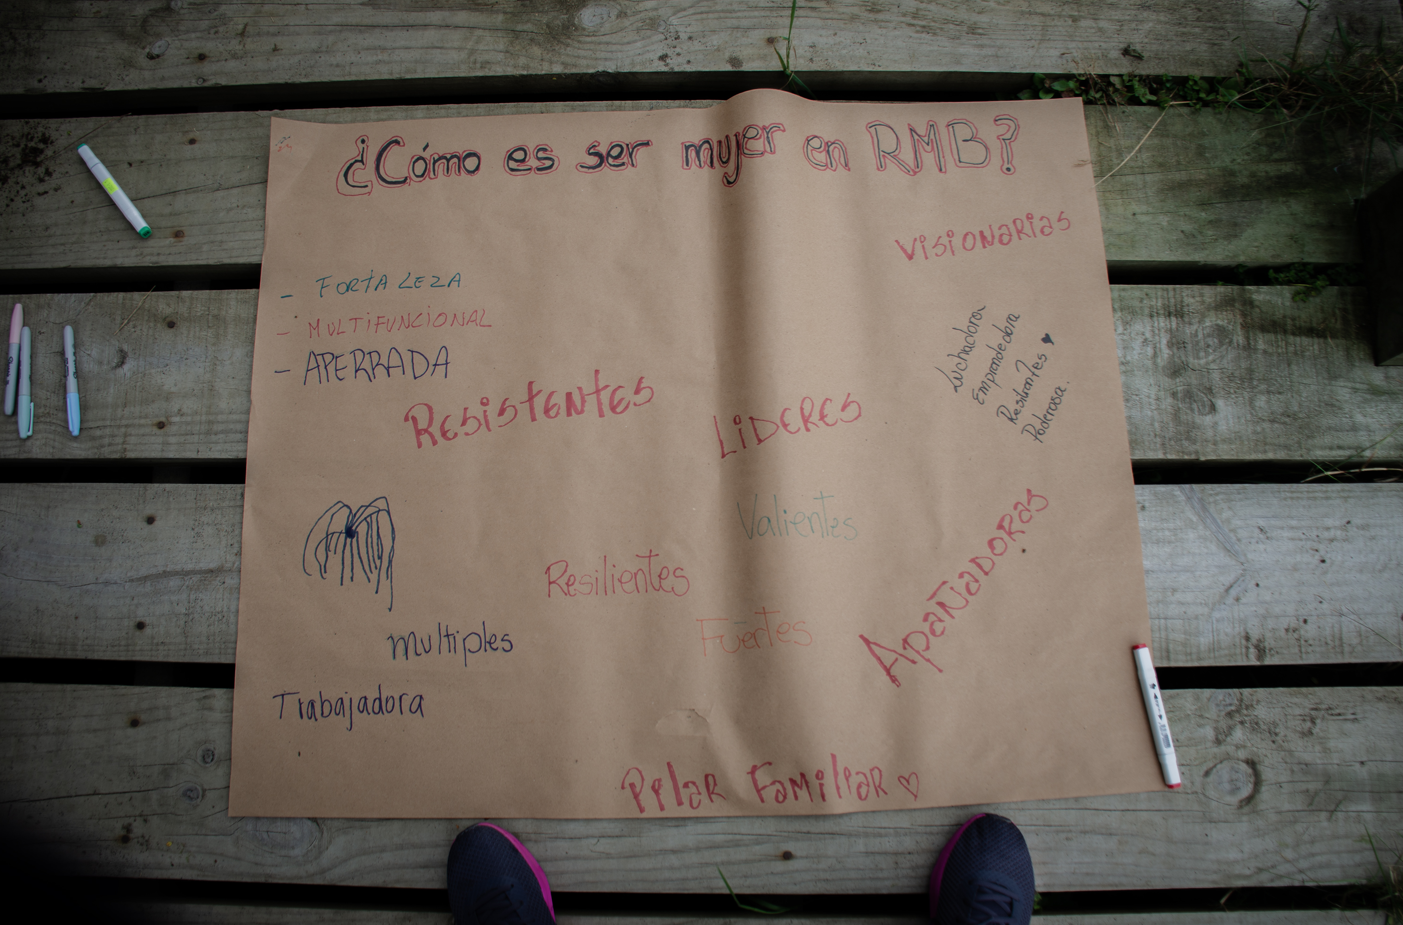 ¿Cómo es ser mujer en RMB?
VISIONARIAS
- FORTALEZA
- MULTIFUNCIONAL
- APERRADA
RESISTENTES
LIDERES
Luchadora
Emprendedora
Poderosa.
Valientes
Resilientes
Fuertes
APAÑADORAS
multiples
Trabajadora
Pilar Familiar ♡